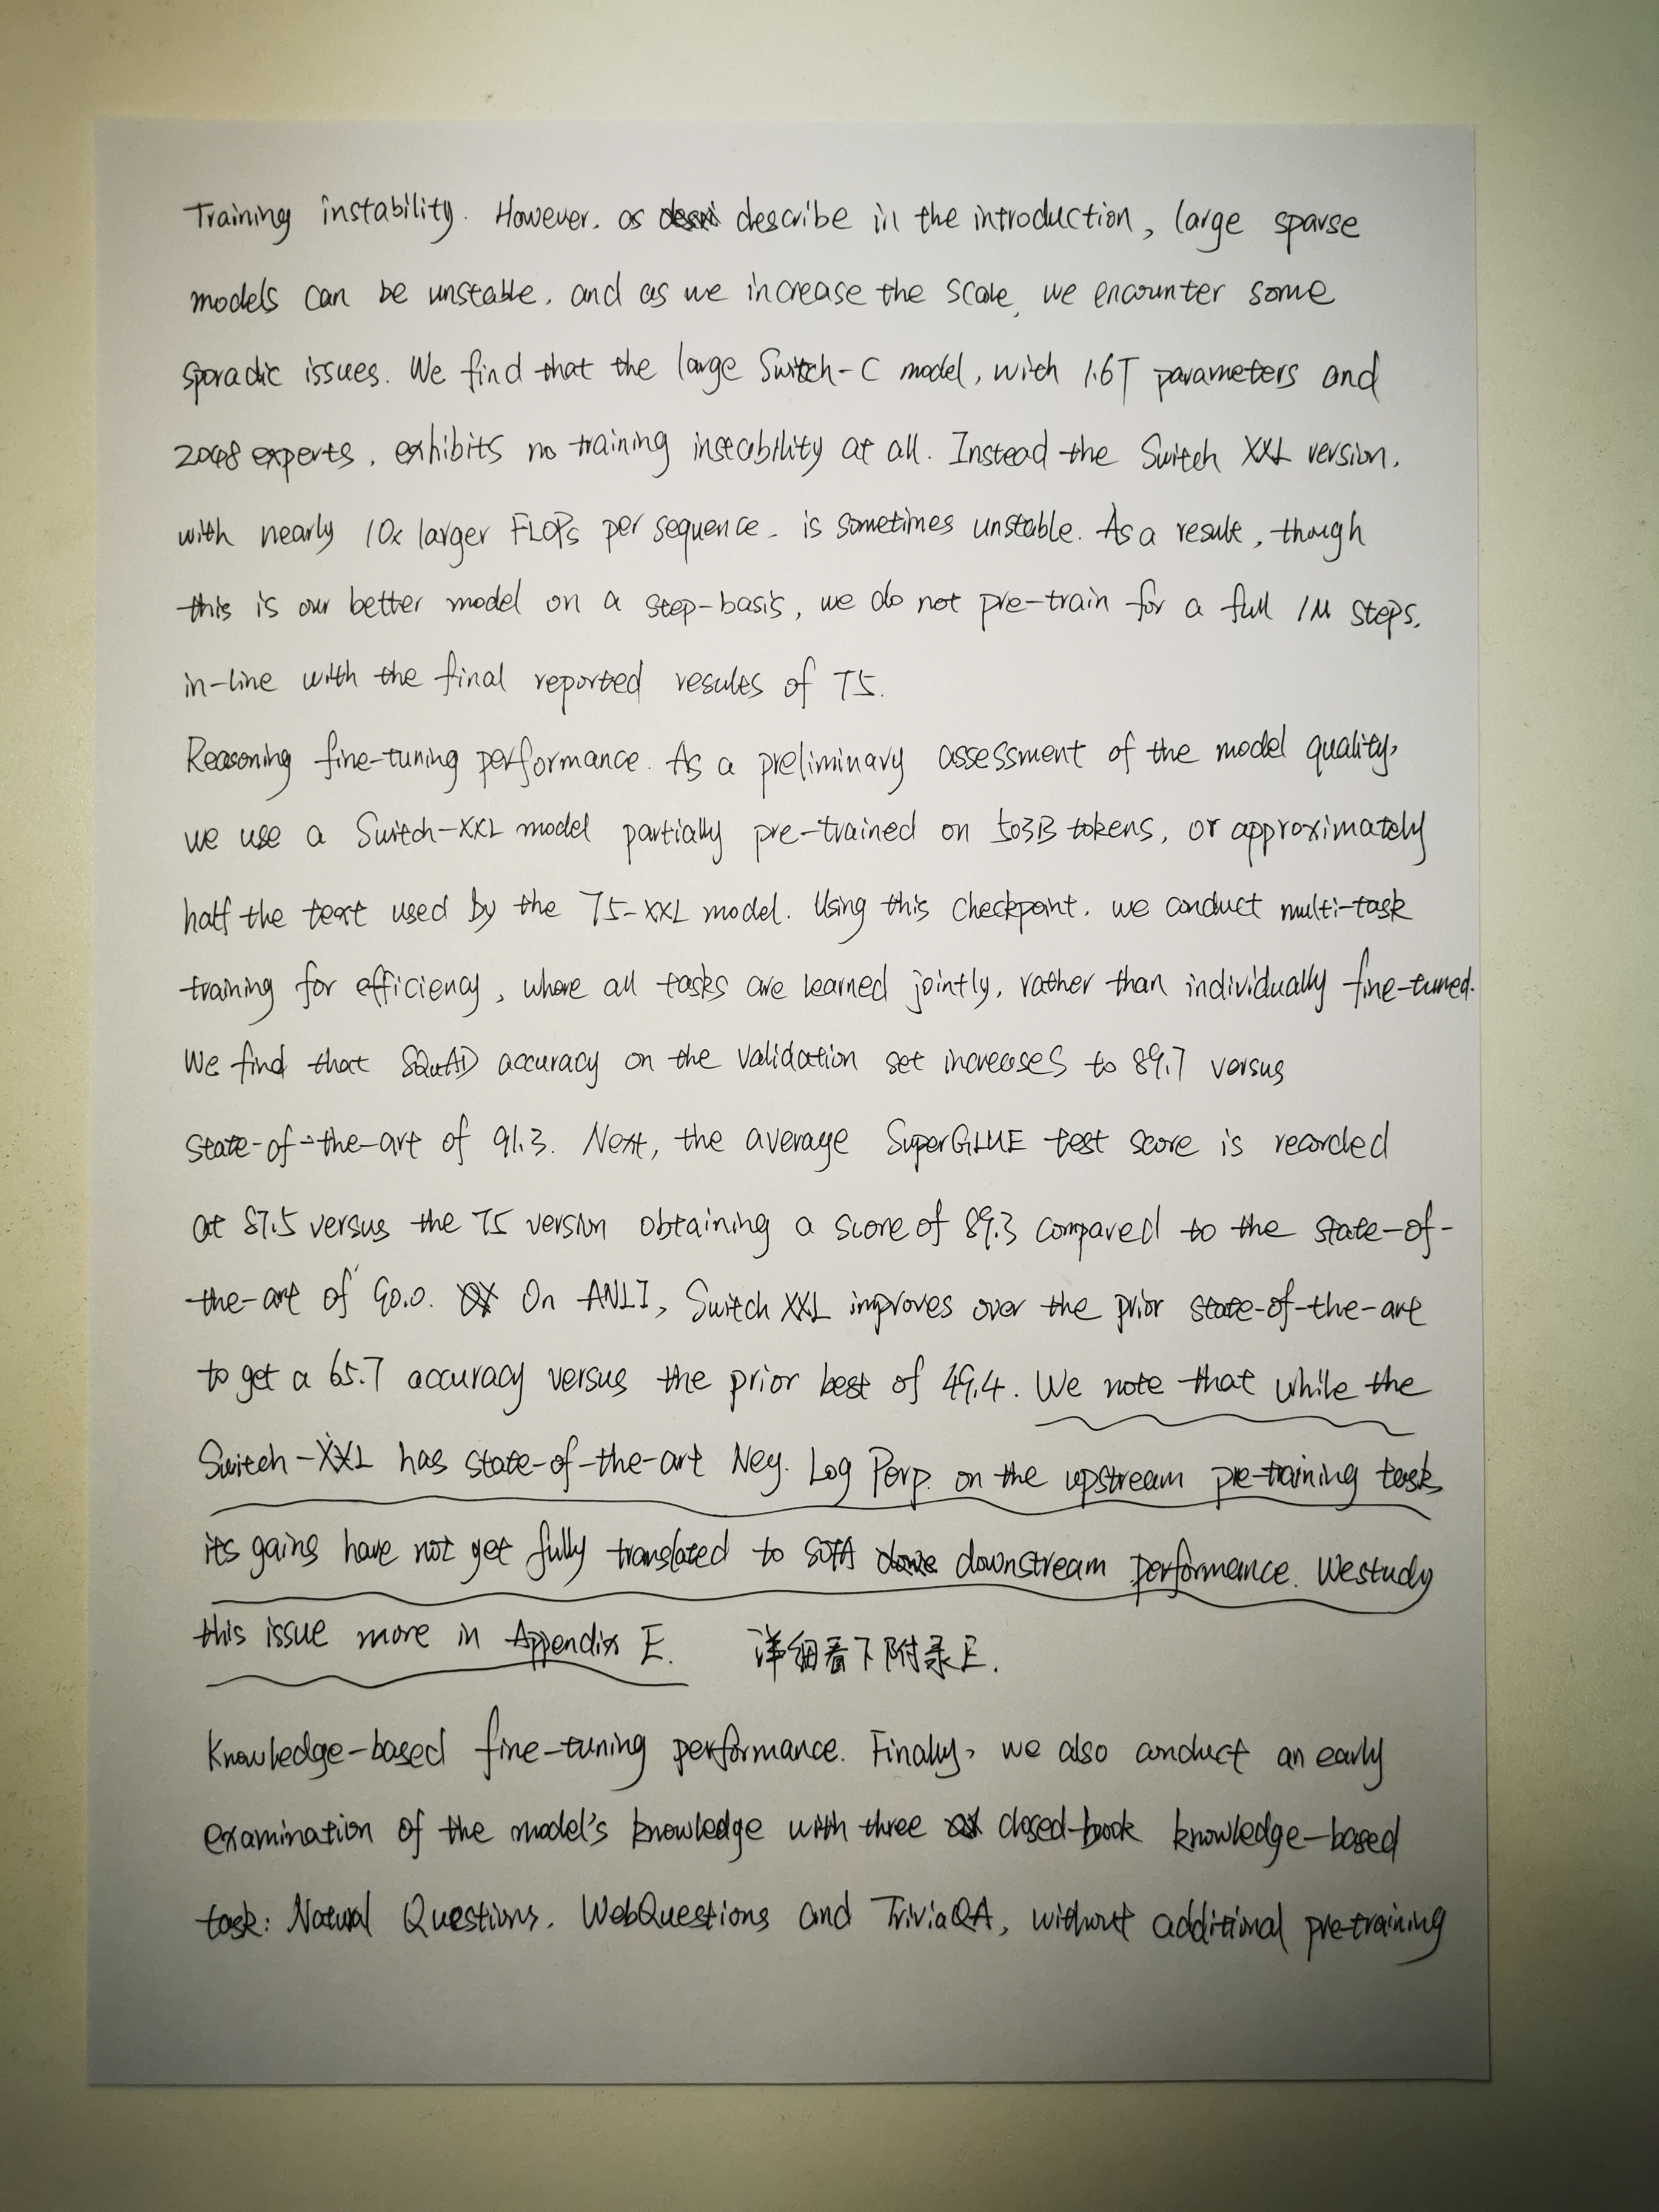 Training instability. However, as describe in the introduction, large sparse
models can be unstable, and as we increase the scale, we encounter some
sporadic issues. We find that the large Switch-C model, with 1.6T parameters and
2048 experts, exhibits no training instability at all. Instead the Switch XXL version,
with nearly 10x larger FLOPs per sequence, is sometimes unstable. As a result, though
this is our better model on a step-basis, we do not pre-train for a full 1M steps,
in-line with the final reported results of T5.
Reasoning fine-tuning performance. As a preliminary assessment of the model quality,
we use a Switch-XXL model partially pre-trained on 503B tokens, or approximately
half the text used by the T5-XXL model. Using this checkpoint, we conduct multi-task
training for efficiency, where all tasks are learned jointly, rather than individually fine-tuned.
We find that SQuAD accuracy on the validation set increases to 89.7 versus
state-of-the-art of 91.3. Next, the average SuperGLUE test score is recorded
at 87.5 versus the T5 version obtaining a score of 89.3 compared to the state-of-
the-art of 90.0. On ANLI, Switch XXL improves over the prior state-of-the-art
to get a 65.7 accuracy versus the prior best of 49.4. We note that while the
Switch-XXL has state-of-the-art Neg. Log Perp. on the upstream pre-training task,
its gains have not yet fully translated to SOTA downstream performance. We study
this issue more in Appendix E. 详细看下附录E.
Knowledge-based fine-tuning performance. Finally, we also conduct an early
examination of the model's knowledge with three closed-book knowledge-based
task: Natural Questions, WebQuestions and TriviaQA, without additional pre-training